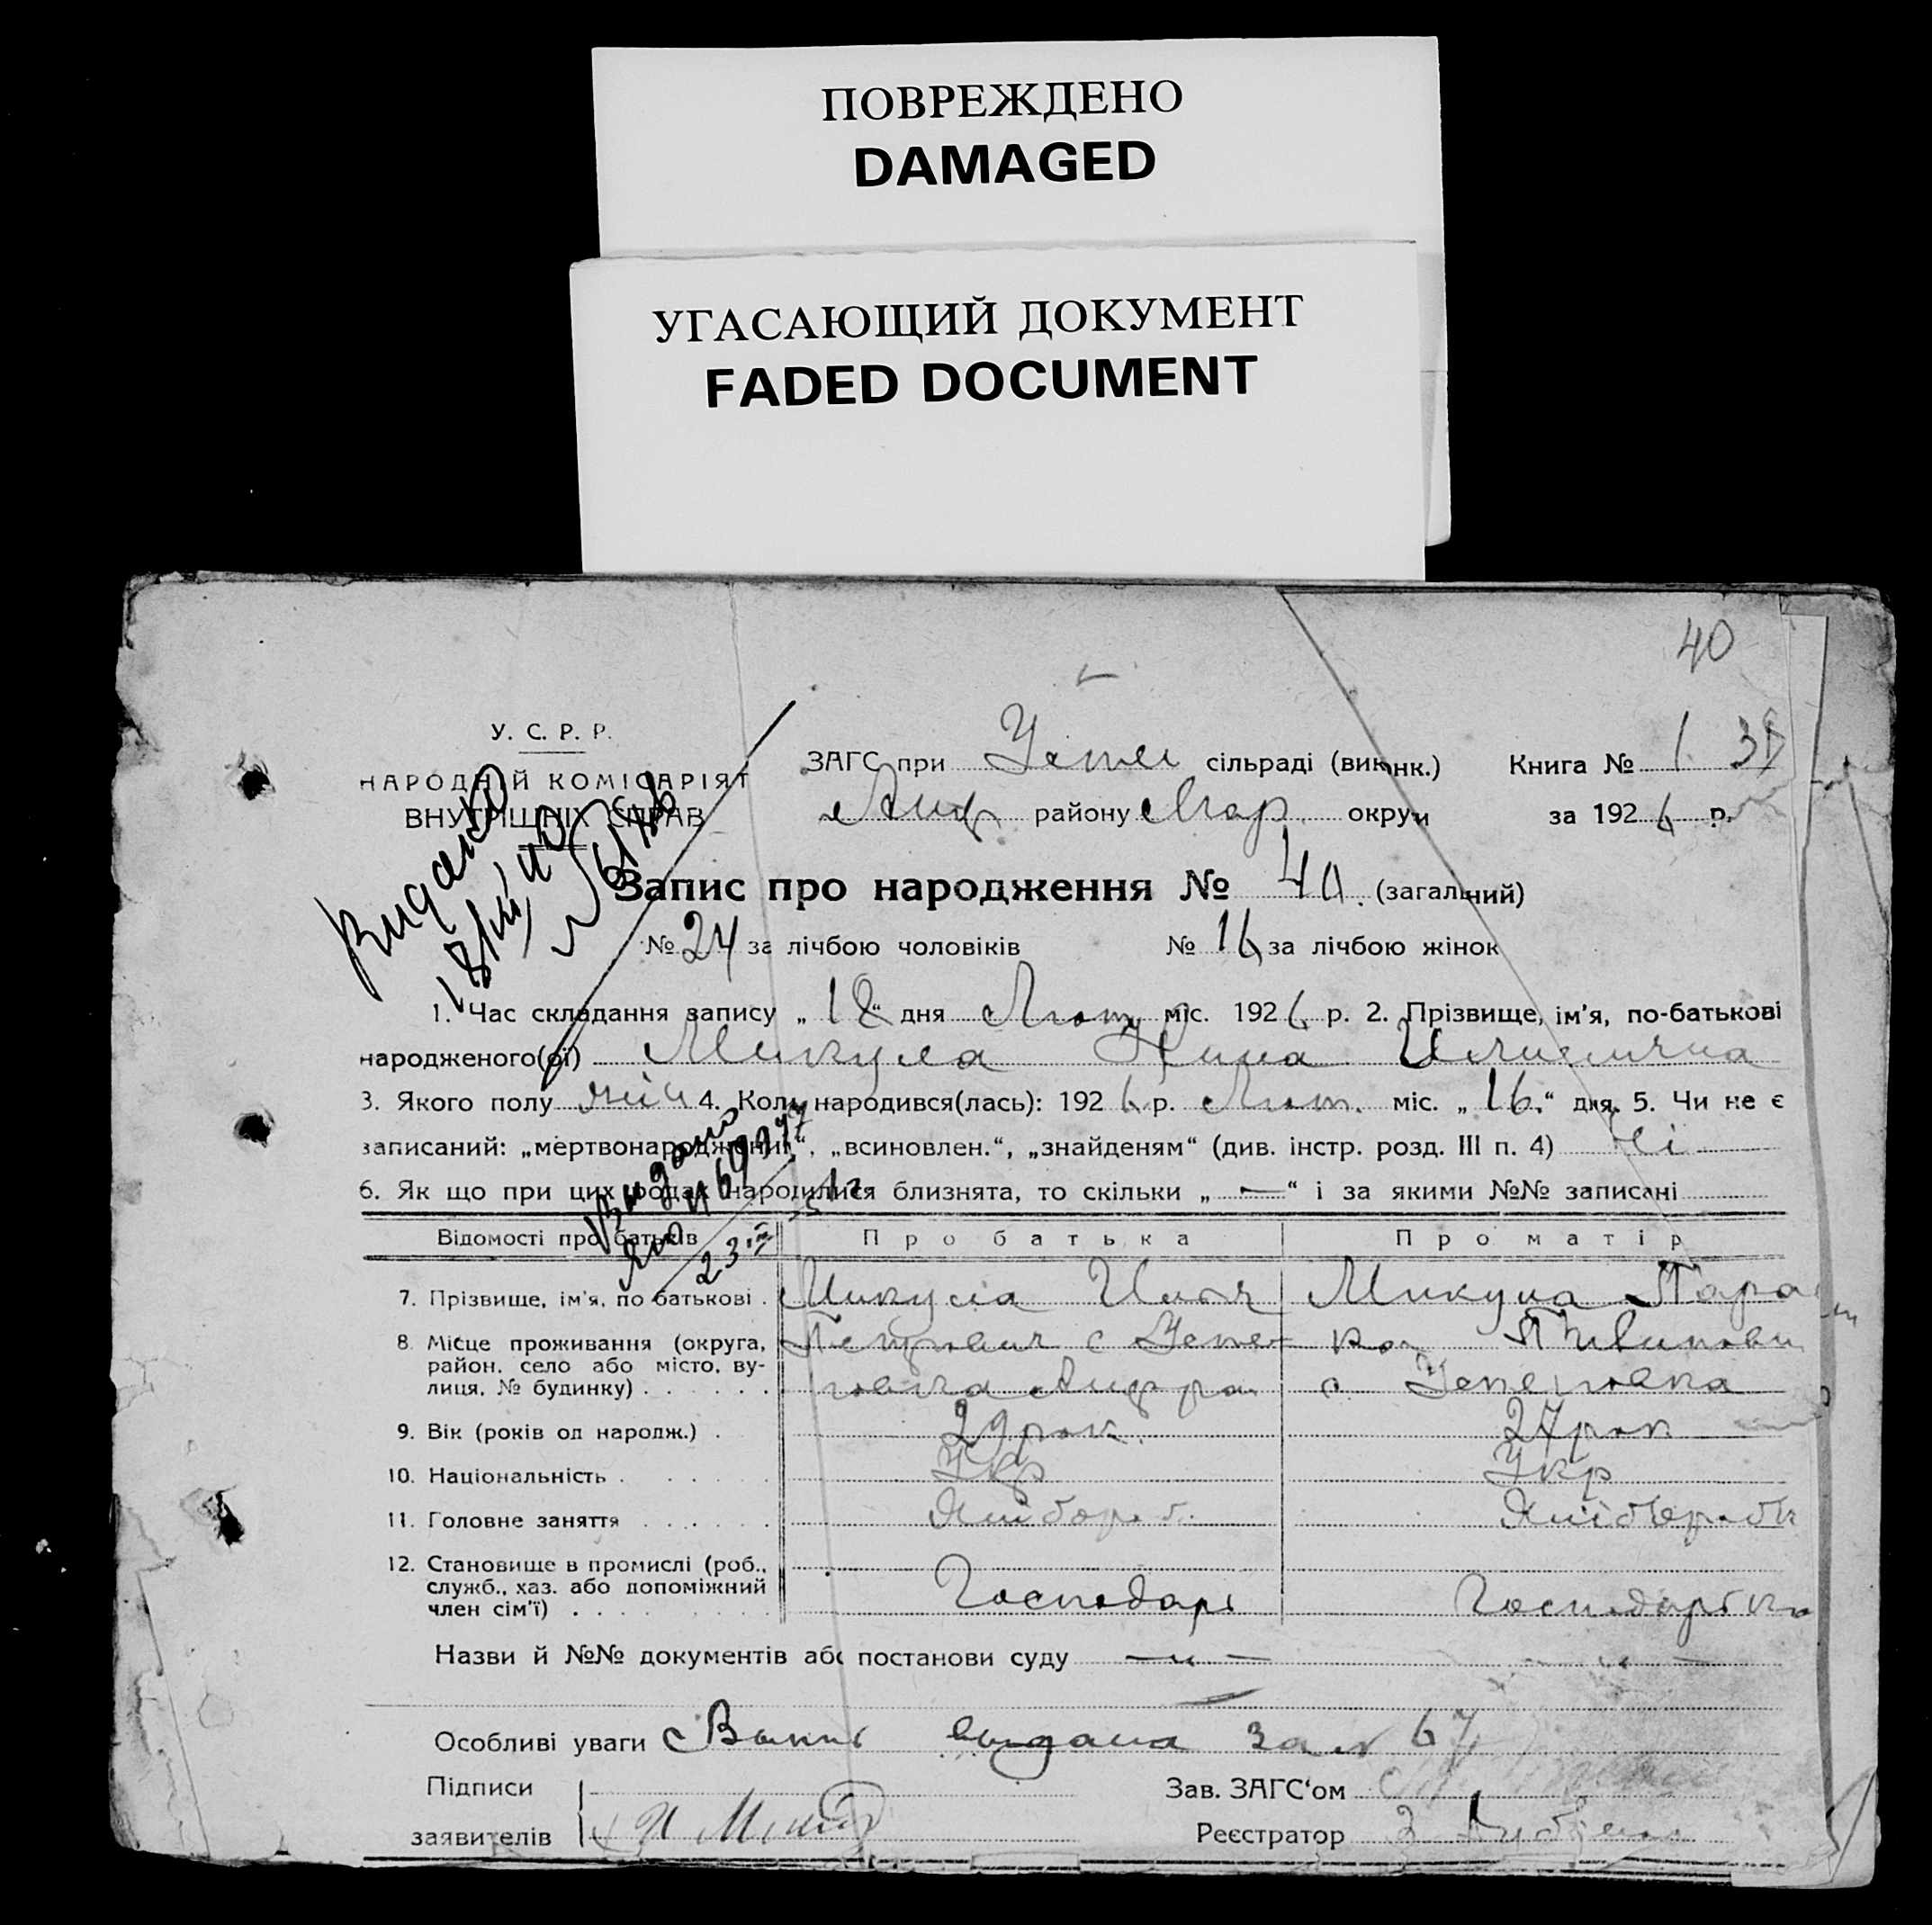 ПОВРЕЖДЕНО
DAMAGED
УГАСАЮЩИЙ ДОКУМЕНТ
FADED DOCUMENT
40
У. С. Р. Р.
НАРОДНІЙ КОМІСАРІЯТ
ВНУТРІШНІХ СПРАВ
Видано
ЗАГС при Успен сільраді (виконк.) Книга № 1
Амф району Мар. округи за 1926 р.
Запис про народження № 40. (загальний)
№ 24 за лічбою чоловіків № 16 за лічбою жінок
1. Час складання запису „18“ дня Лют. міс. 1926 р. 2. Прізвище, ім'я, по-батькові
народженого(ої) Микула Нина
3. Якого полу жін 4. Коли народився(лась): 1926 р. Лют. міс. „16.“ дня. 5. Чи не є
записаний: „мертвонароджений“, „всиновлен.“, „знайденям“ (див. інстр. розд. III п. 4) Ні
6. Як що при цих родах народилися близнята, то скільки „—“ і за якими №№ записані
Видано
Відомості про батьків Про батька Про матір
7. Прізвище, ім'я, по батькові . Микула Илья Микула Параш
8. Місце проживання (округа, Петрович с Успе- ка
район, село або місто, ву-
лиця, № будинку) . . . . . . новка Амф ра с. Успеновка
9. Вік (років од народж.) . 29 рок. 27 рок
10. Національність . . . . . Укр Укр
11. Головне заняття . . . . . . Хлібороб. Хлібороб
12. Становище в промислі (роб.,
служб., хаз. або допоміжний
член сім'ї) . . . . . . . . Господарь Господарька
Назви й №№ документів або постанови суду — „ — — „ —
Особливі уваги Выпис выдана за № 67
Підписи Зав. ЗАГС'ом
заявителів Реєстратор